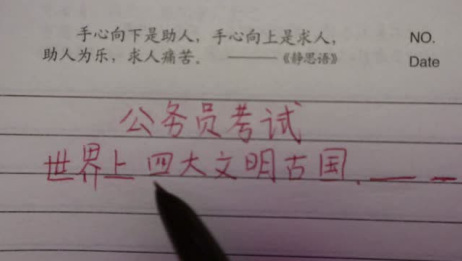 手心向下是助人，手心向上是求人，
助人为乐，求人痛苦。 ——《静思语》
NO.
Date
公务员考试
世界上四大文明古国、